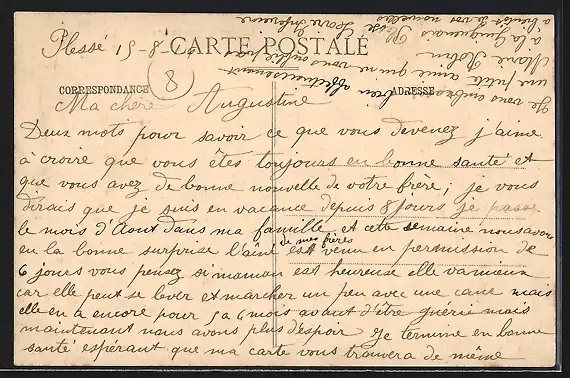 Plessé 15-8-
CARTE POSTALE
8
CORRESPONDANCE
ADRESSE
Ma chère Augustine
Deux mots pour savoir ce que vous devenez j'aime
à croire que vous êtes toujours en bonne santé et
que vous avez de bonne nouvelle de votre frère; je vous
dirais que je suis en vacance depuis 8 jours je passe
le mois d'Aout dans ma famille et cette semaine nous avons
eu la bonne surprise l'aîné de mes frères est venu en permission de
6 jours vous pensez si maman est heureuse elle va mieux
car elle peut se lever et marcher un peu avec une cane mais
elle en a encore pour 5 a 6 mois avant d'être guérie mais
maintenant nous avons plus d'espoir Je termine en bonne
santé espérant que ma carte vous trouvera de même
Je vous embrasse bien affectueusement
une petite amie qui ne vous oublie pas
Marie
à la
Plessé
Loire Inférieure
a bientôt de vos nouvelles